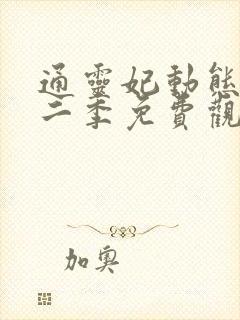 通靈妃動態
二季免費觀
加奧